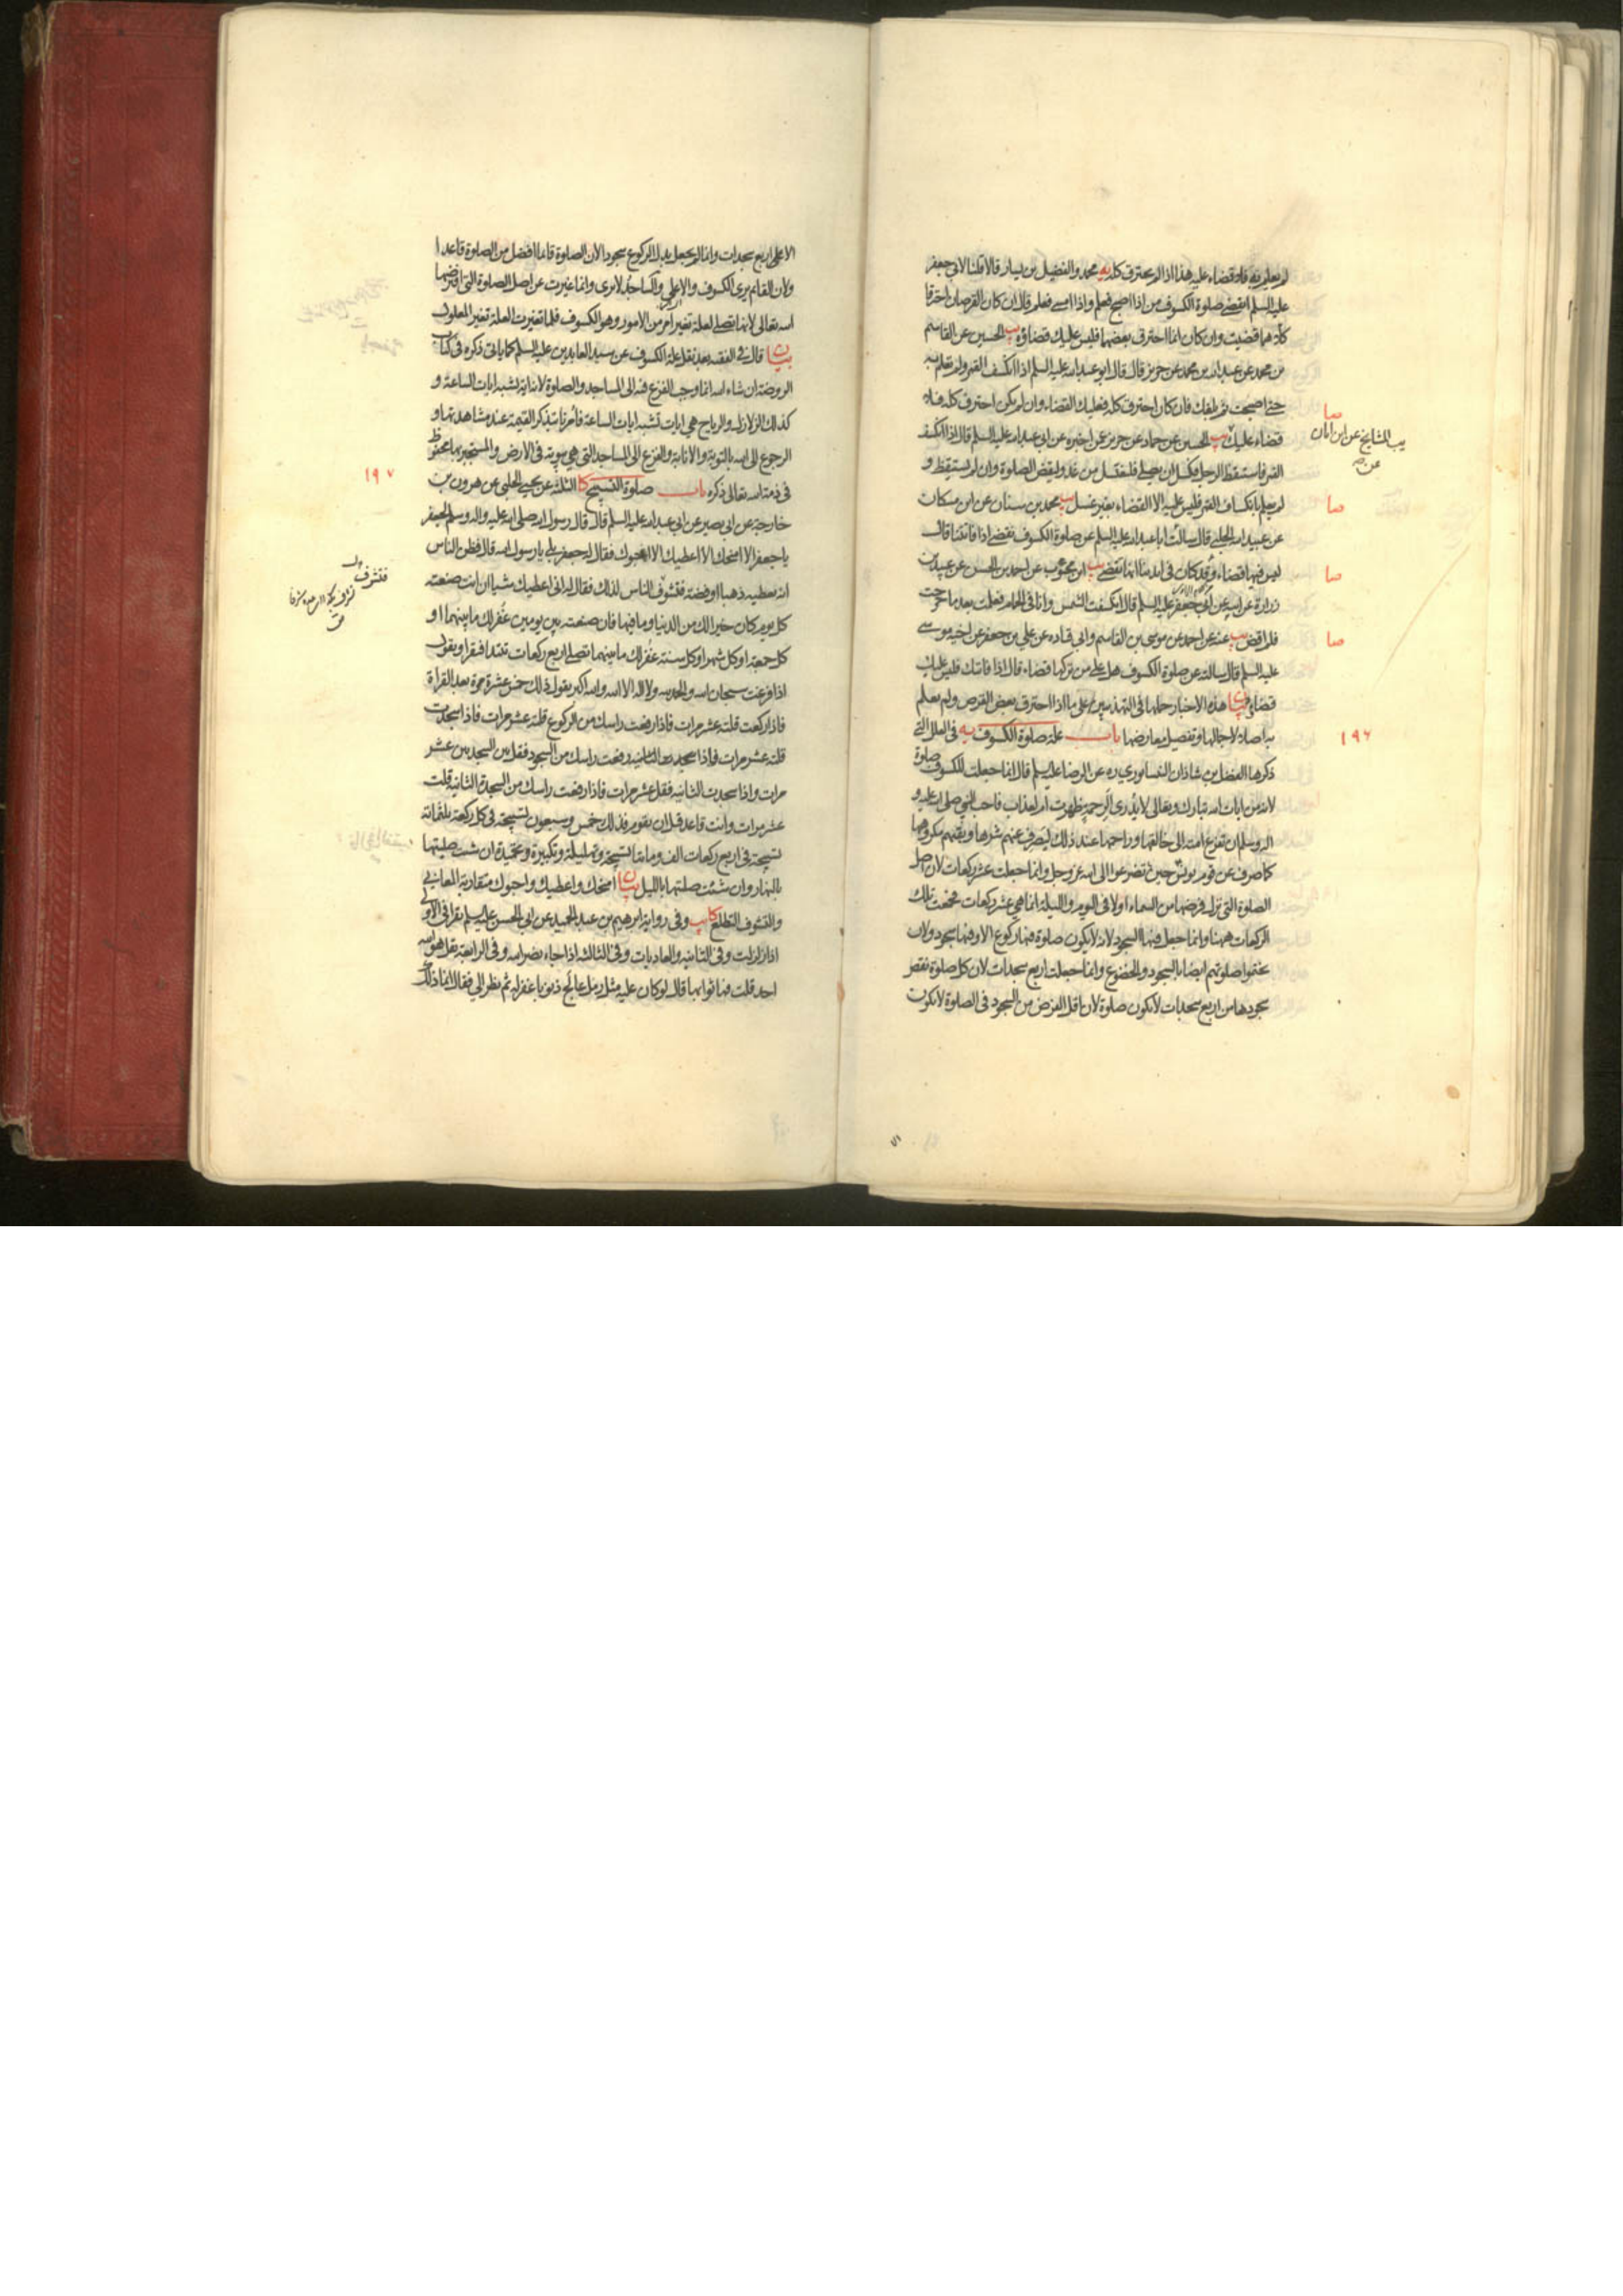 لم يعلم به فلا قضاء عليه هذا اذا لم يحترق كله يه محمد والفضيل بن يسار قالا قلنا لابي جعفر
عليه السلم انقضي صلوة الكسوف من اذا اصبح فعلم واذا امسى فعلم قال ان كان القرصان احترقا
كلاهما قضيت وان كان انما احترق بعضهما فليس عليك قضاؤه يب الحسين عن القاسم
بن محمد عن عبد الله بن محمد عن حريز قال قال ابو عبد الله عليه السلم اذا انكسف القمر ولم تعلم به
حتى اصبحت ثم بلغك فان كان احترق كله فعليك القضاء وان لم يكن احترق كله فلا
قضاء عليك يب الحسين عن حماد عن حريز عمن اخبره عن ابي عبد الله عليه السلم قال اذا انكسف
القمر فاستيقظ الرجل فكسل ان يصلي فليغتسل من غد وليقض الصلوة وان لم يستيقظ و
لم يعلم بانكساف القمر فليس عليه الا القضاء بغير غسل يب محمد بن سنان عن ابن مسكان
عن عبيد الله الحلبي قال سالت ابا عبد الله عليه السلم عن صلوة الكسوف تقضي اذا فاتتنا قال
ليس فيها قضاء وقد كان في ايدينا انها تقضى يب ابن محبوب عن احمد بن الحسن عن عبيد بن
زرارة عن ابيه عن ابي جعفر عليه السلم قال انكسفت الشمس وانا في الحمام فعلمت بعد ما خرجت
فلم اقض يب عنه عن احمد عن موسى بن القاسم وابي قتاده عن علي بن جعفر عن اخيه موسى
عليه السلم قال سالته عن صلوة الكسوف هل على من تركها قضاء قال اذا فاتتك فليس عليك
قضاء بيان هذه الاخبار حملها في التهذيبين على ما اذا احترق بعض القرص ولم يعلم
به اصلا لاجمالها وتفصيل معارضها باب علة صلوة الكسوف يه في العلل التي
ذكرها الفضل بن شاذان النيسابوري ره عن الرضا عليه السلم قال انما جعلت للكسوف صلوة
لانه من ايات الله تبارك وتعالى لا يدرى الرحمة ظهرت ام لعذاب فاحب النبي صلى الله عليه و
اله وسلم ان تفزع امته الى خالقها وراحمها عند ذلك ليصرف عنهم شرها ويقيهم مكروهها
كما صرف عن قوم يونس حين تضرعوا الى الله عز وجل وانما جعلت عشر ركعات لان اصل
الصلوة التي نزل فرضها من السماء اولا في اليوم والليلة انما هي عشر ركعات فجمعت تلك
الركعات ههنا وانما جعل فيها السجود لانه لا يكون صلوة فيها ركوع الا وفيها سجود ولان
يختموا صلوتهم ايضا بالسجود والخضوع وانما جعلت اربع سجدات لان كل صلوة نقص
سجودها من اربع سجدات لا تكون صلوة لان اقل الفرض من السجود في الصلوة لا تكون
صا
يب المشايخ عن ابن ابان
عن
صا
صا
صا
١٩٦
الا على اربع سجدات وانما لم يجعل بدل الركوع سجودا لان الصلوة قائما افضل من الصلوة قاعدا
ولان القايم يرى الكسوف والاعلى والساجد لا يرى وانما غيرت عن اصل الصلوة التي افترضها
الله تعالى لانها تصلى لعلة تغير امر من الامور وهو الكسوف فلما تغيرت العلة تغير المعلول
بيان قال في الفقيه بعد نقل علة الكسوف عن سيد العابدين عليه السلم كما ياتي ذكره في كتاب
الروضة ان شاء الله انما وجب الفزع فيه الى المساجد والصلوة لانه اية تشبه ايات الساعة و
كذلك الزلازل والرياح هي ايات تشبه ايات الساعة فامرنا بتذكر القيمة عند مشاهدتها و
الرجوع الى الله بالتوبة والانابة والفزع الى المساجد التي هي بيوته في الارض والمستجير بها محفوظ
في ذمة الله تعالى ذكره باب صلوة التسبيح كا الثلثة عن يحيى الحلبي عن هرون بن
خارجة عن ابي بصير عن ابي عبد الله عليه السلم قال قال رسول الله صلى الله عليه واله وسلم لجعفر
يا جعفر الا امنحك الا اعطيك الا احبوك فقال له جعفر بلى يا رسول الله قال فظن الناس
انه يعطيه ذهبا او فضة فتشوف الناس لذلك فقال له اني اعطيك شيئا ان انت صنعته
كل يوم كان خيرا لك من الدنيا وما فيها فان صنعته بين يومين غفر لك ما بينهما او
كل جمعة او كل شهر او كل سنة غفر لك ما بينهما تصلي اربع ركعات تبتدا فتقرا وتقول
اذا فرغت سبحان الله والحمد لله ولا اله الا الله والله اكبر تقول ذلك خمس عشرة مرة بعد القراءة
فاذا ركعت قلته عشر مرات فاذا رفعت راسك من الركوع قلته عشر مرات فاذا سجدت
قلته عشر مرات فاذا رفعت راسك من السجود فقل بين السجدتين عشر
مرات واذا سجدت الثانية فقل عشر مرات فاذا رفعت راسك من السجدة الثانية قلت
عشر مرات وانت قاعد قبل ان تقوم فذلك خمس وسبعون تسبيحة في كل ركعة ثلثمائة
تسبيحة في اربع ركعات الف ومائتا تسبيحة وتهليلة وتكبيرة وتحميدة ان شئت صليتها
بالنهار وان شئت صليتها بالليل بيان امنحك واعطيك واحبوك متقاربة المعاني
والتشوف التطلع كا يب وفي رواية ابرهيم بن عبد الحميد عن ابي الحسن عليه السلم تقرا في الاولى
اذا زلزلت وفي الثانية والعاديات وفي الثالثة اذا جاء نصر الله وفي الرابعة بقل هو الله
احد قلت فما ثوابها قال لو كان عليه مثل رمل عالج ذنوبا غفر له ثم نظر الي فقال انما ذلك
١٩٧
فتشرف